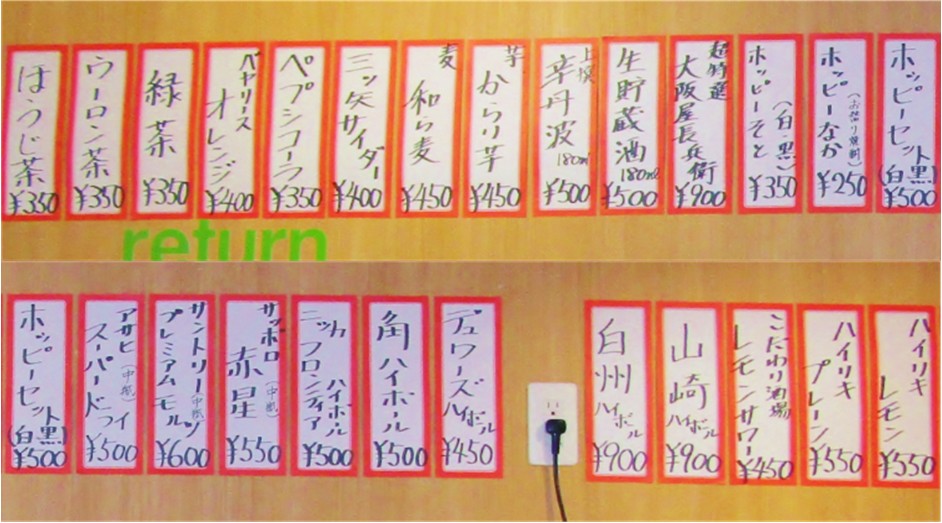 ほうじ茶
¥350
ウーロン茶
¥350
緑茶
¥350
バヤリース
オレンジ
¥400
ペプシコーラ
¥350
三ツ矢サイダー
¥400
麦
和ら麦
¥450
芋
からり芋
¥450
上撰
辛丹波
180ml
¥500
生貯蔵酒
180ml
¥500
超特選
大阪屋長兵衛
¥900
ホッピーそと
(白・黒)
¥350
ホッピーなか
(お替り焼酎)
¥250
ホッピーセット
(白黒)
¥500
return
ホッピーセット
(白黒)
¥500
アサヒ(中瓶)
スーパードライ
¥500
サントリー(中瓶)
プレミアムモルツ
¥600
サッポロ
赤星
(中瓶)
¥550
ニッカ
フロンティア
ハイボール
¥500
角ハイボール
¥500
デュワーズハイボール
¥450
白州
ハイボール
¥900
山崎
ハイボール
¥900
こだわり酒場
レモンサワー
¥450
ハイリキ
プレーン
¥550
ハイリキ
レモン
¥550